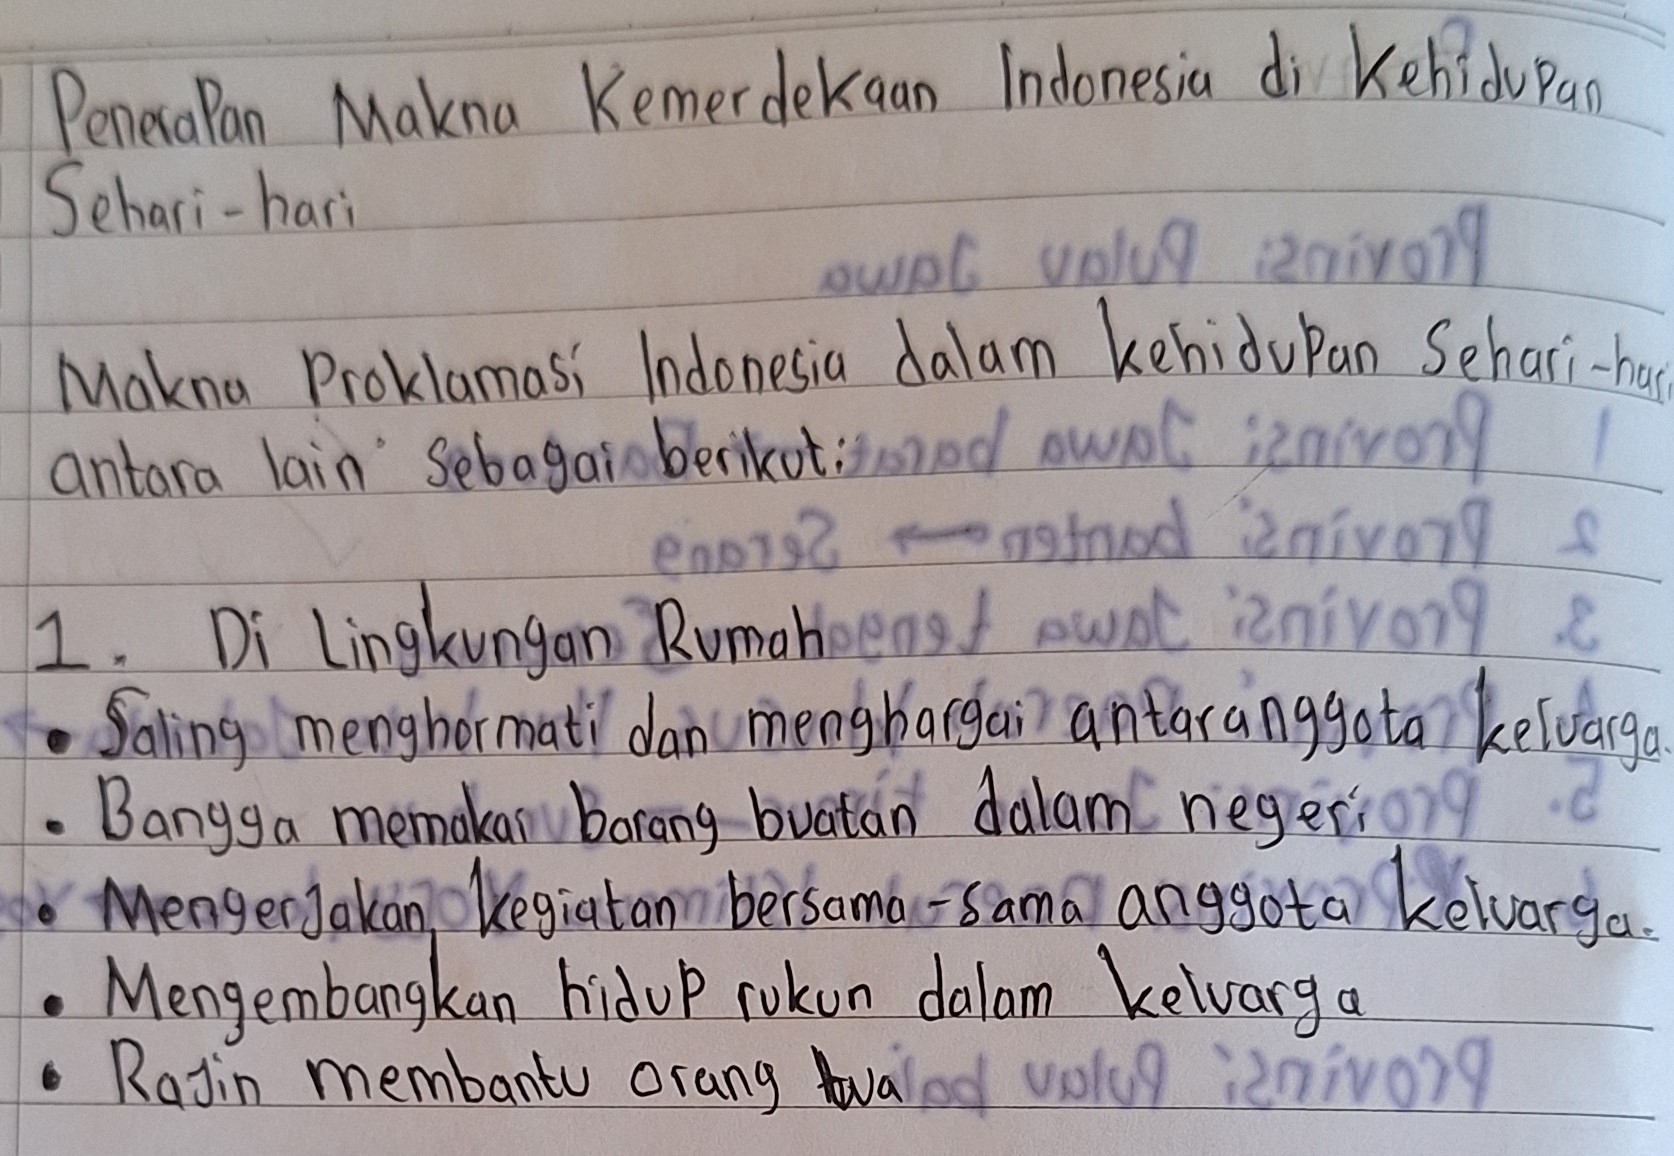 Penerapan Makna Kemerdekaan Indonesia di Kehidupan
Sehari-hari
Makna Proklamasi Indonesia dalam kehidupan Sehari-hari
antara lain sebagai berikut:
1. Di Lingkungan Rumah
• Saling menghormati dan menghargai antaranggota keluarga.
• Bangga memakai barang buatan dalam negeri
• Mengerjakan kegiatan bersama-sama anggota keluarga.
• Mengembangkan hidup rukun dalam keluarga
• Rajin membantu orang tua